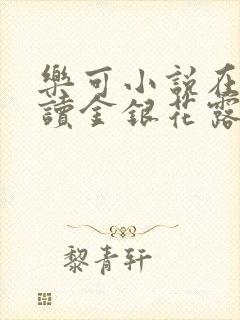 樂可小説在
讀金銀花露
黎青轩